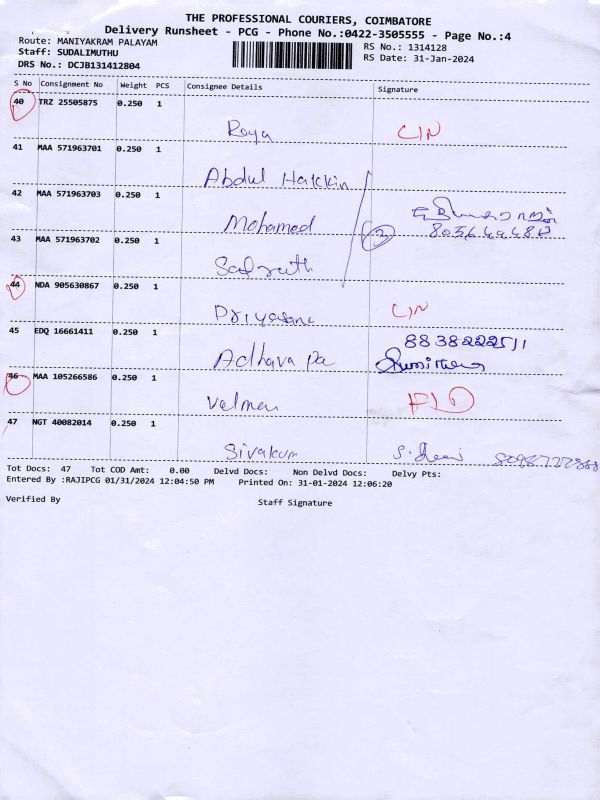 THE PROFESSIONAL COURIERS, COIMBATORE
Delivery Runsheet - PCG - Phone No.:0422-3505555 - Page No.:4
Route: MANIYAKRAM PALAYAM
RS No.: 1314128
Staff: SUDALIMUTHU
RS Date: 31-Jan-2024
DRS No.: DCJB131412804
S No Consignment No Weight PCS Consignee Details Signature
40 TRZ 25505875 0.250 1
Roya CIN
41 MAA 571963701 0.250 1
Abdul Hakkin
42 MAA 571963703 0.250 1
Mohamed
43 MAA 571963702 0.250 1
2
44 NDA 905630867 0.250 1
CIN
45 EDQ 16661411 0.250 1
Adhava Pa
46 MAA 105266586 0.250 1
47 NGT 40082014 0.250 1
Sivakum
Tot Docs: 47 Tot COD Amt: 0.00 Delvd Docs: Non Delvd Docs: Delvy Pts:
Entered By :RAJIPCG 01/31/2024 12:04:50 PM Printed On: 31-01-2024 12:06:20
Verified By Staff Signature